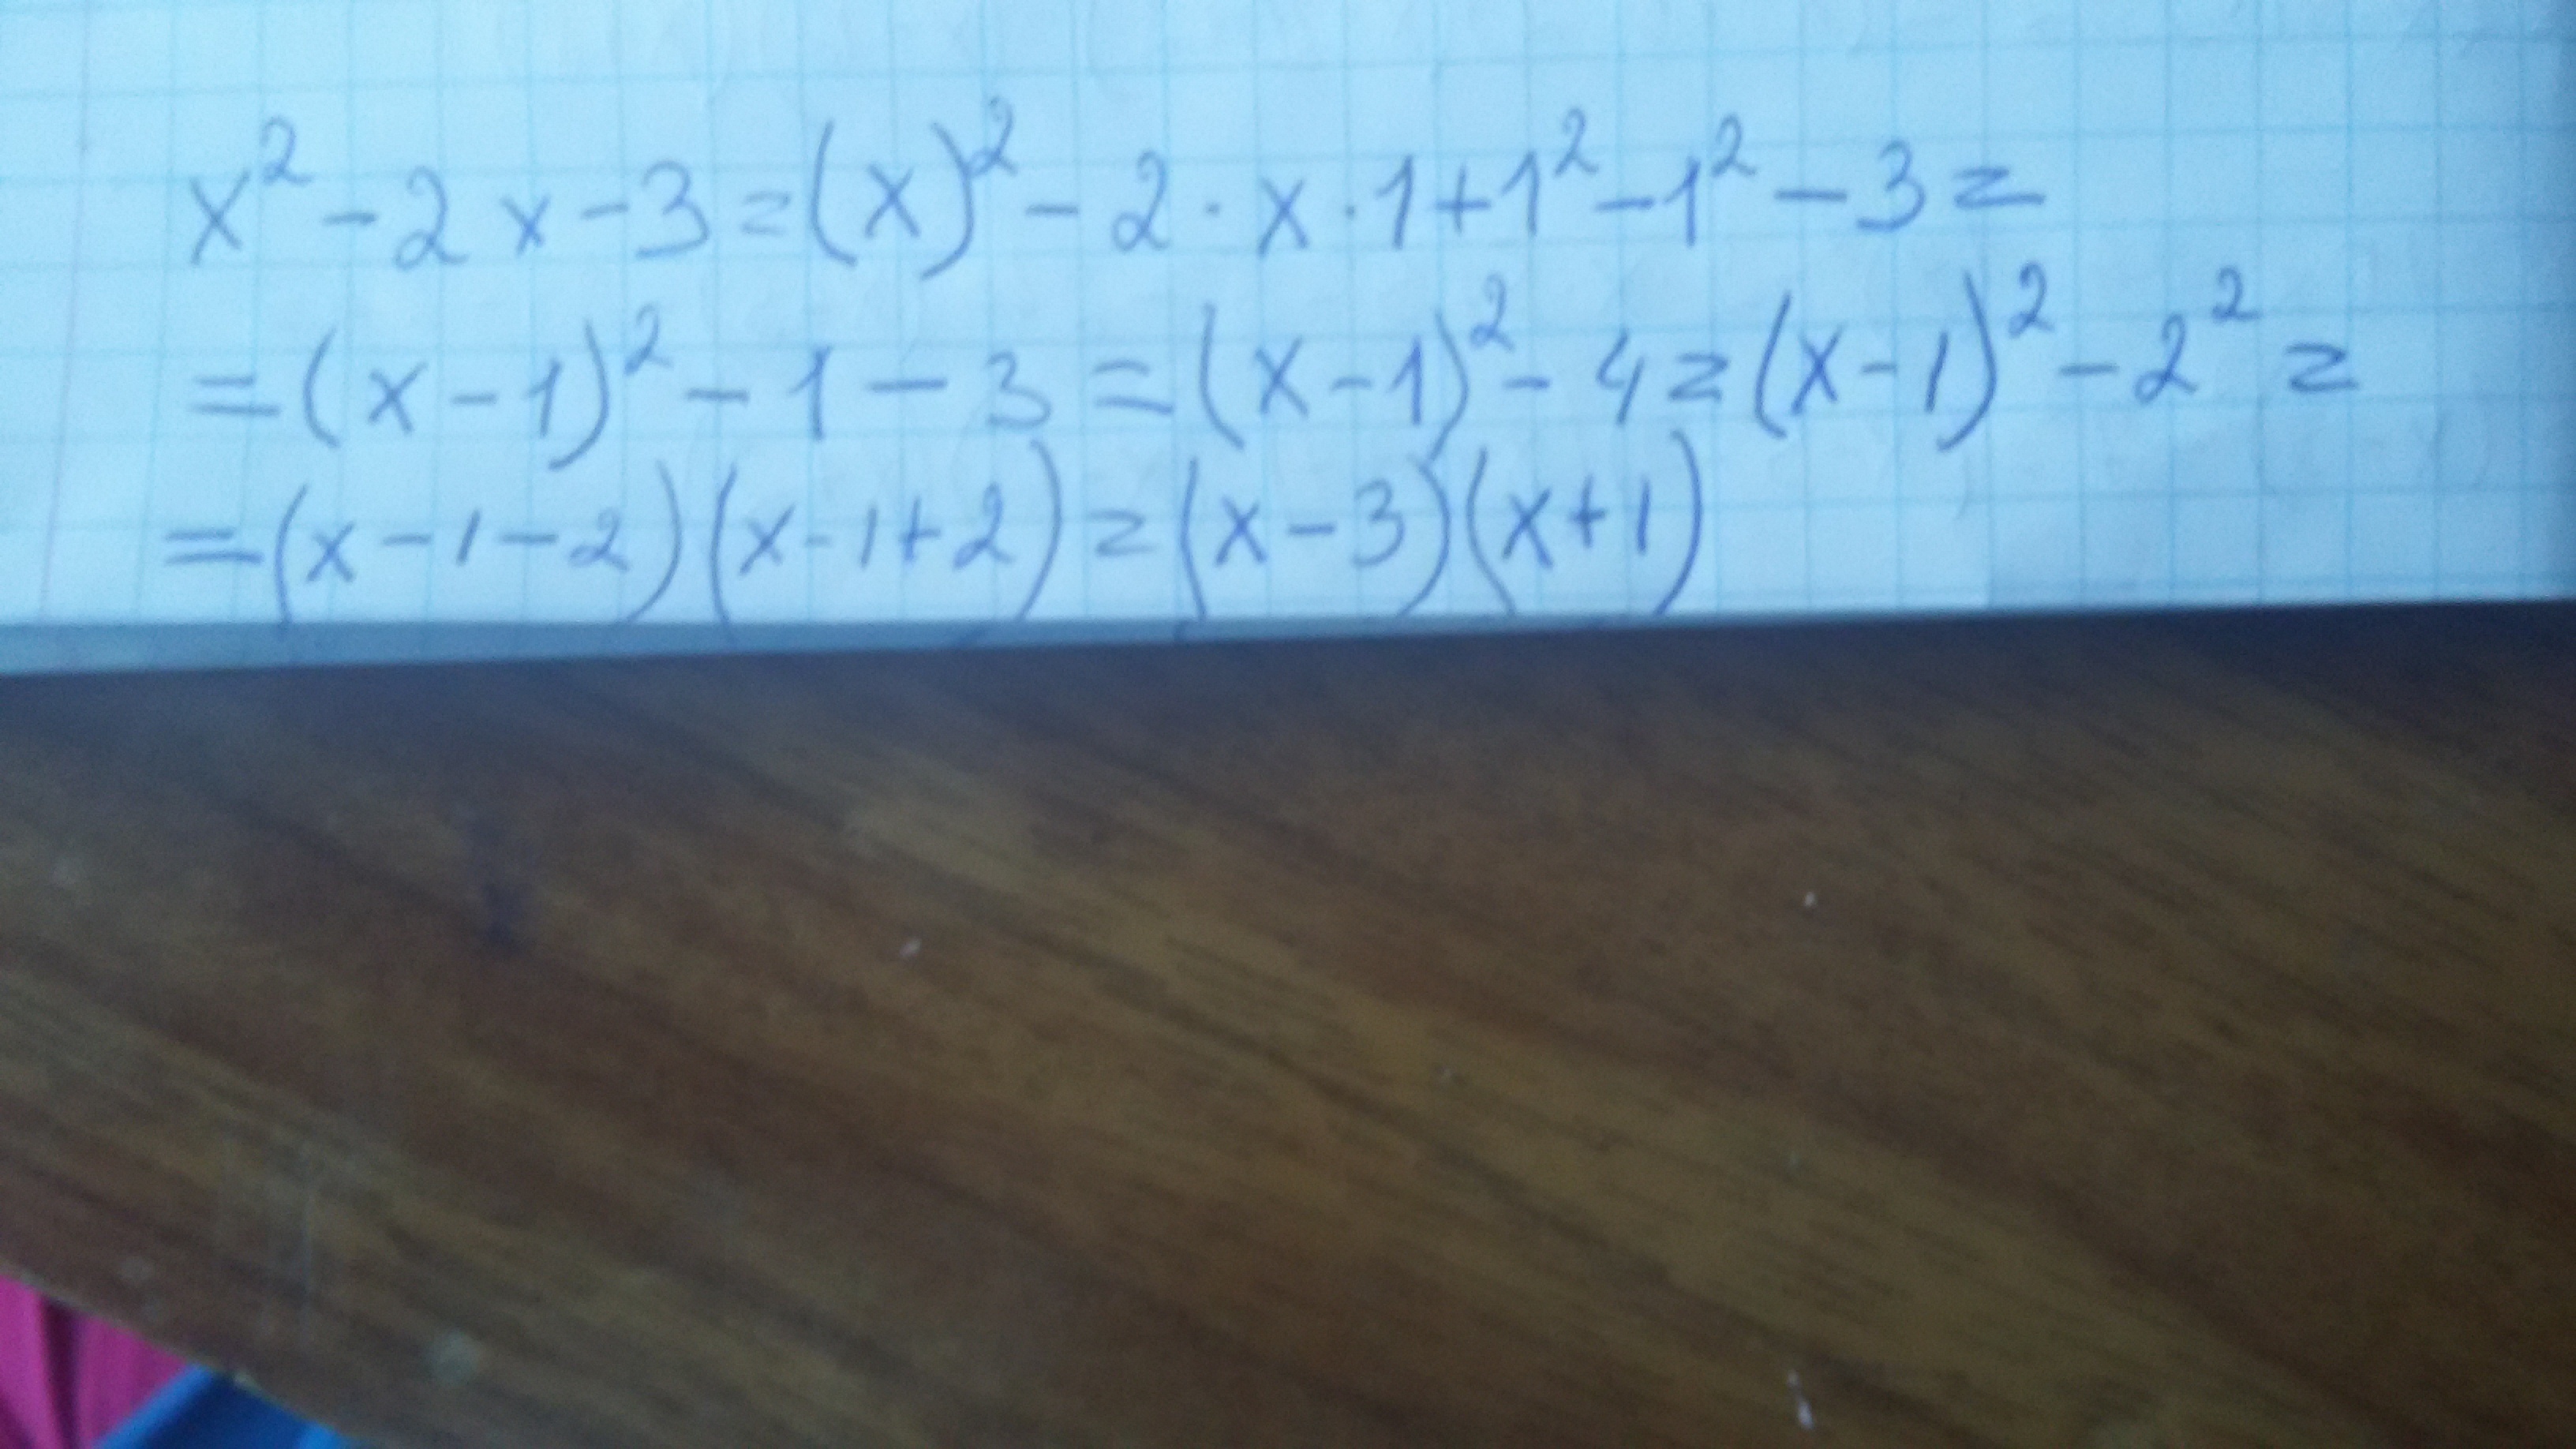 x² - 2x - 3 = (x)² - 2 · x · 1 + 1² - 1² - 3 =
= (x - 1)² - 1 - 3 = (x - 1)² - 4 = (x - 1)² - 2² =
= (x - 1 - 2)(x - 1 + 2) = (x - 3)(x + 1)